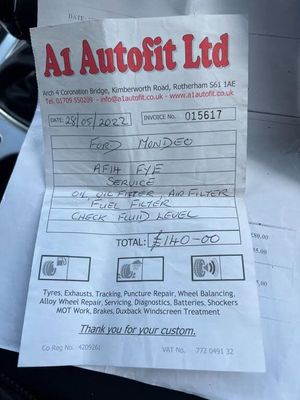 DATE:
A1 Autofit Ltd
Arch 4 Coronation Bridge, Kimberworth Road, Rotherham S61 1AE
Tel: 01709 550209 - info@a1autofit.co.uk - www.a1autofit.co.uk
DATE: 28/05/2022 INVOICE No. 015617
FORD MONDEO
AF14 FYE
SERVICE
OIL, OIL FILTER, AIR FILTER
FUEL FILTER
CHECK FLUID LEVEL
TOTAL: £140-00
Tyres, Exhausts, Tracking, Puncture Repair, Wheel Balancing,
Alloy Wheel Repair, Servicing, Diagnostics, Batteries, Shockers
MOT Work, Brakes, Duxback Windscreen Treatment
Thank you for your custom.
Co Reg No. 4209261 VAT No. 772 0491 32